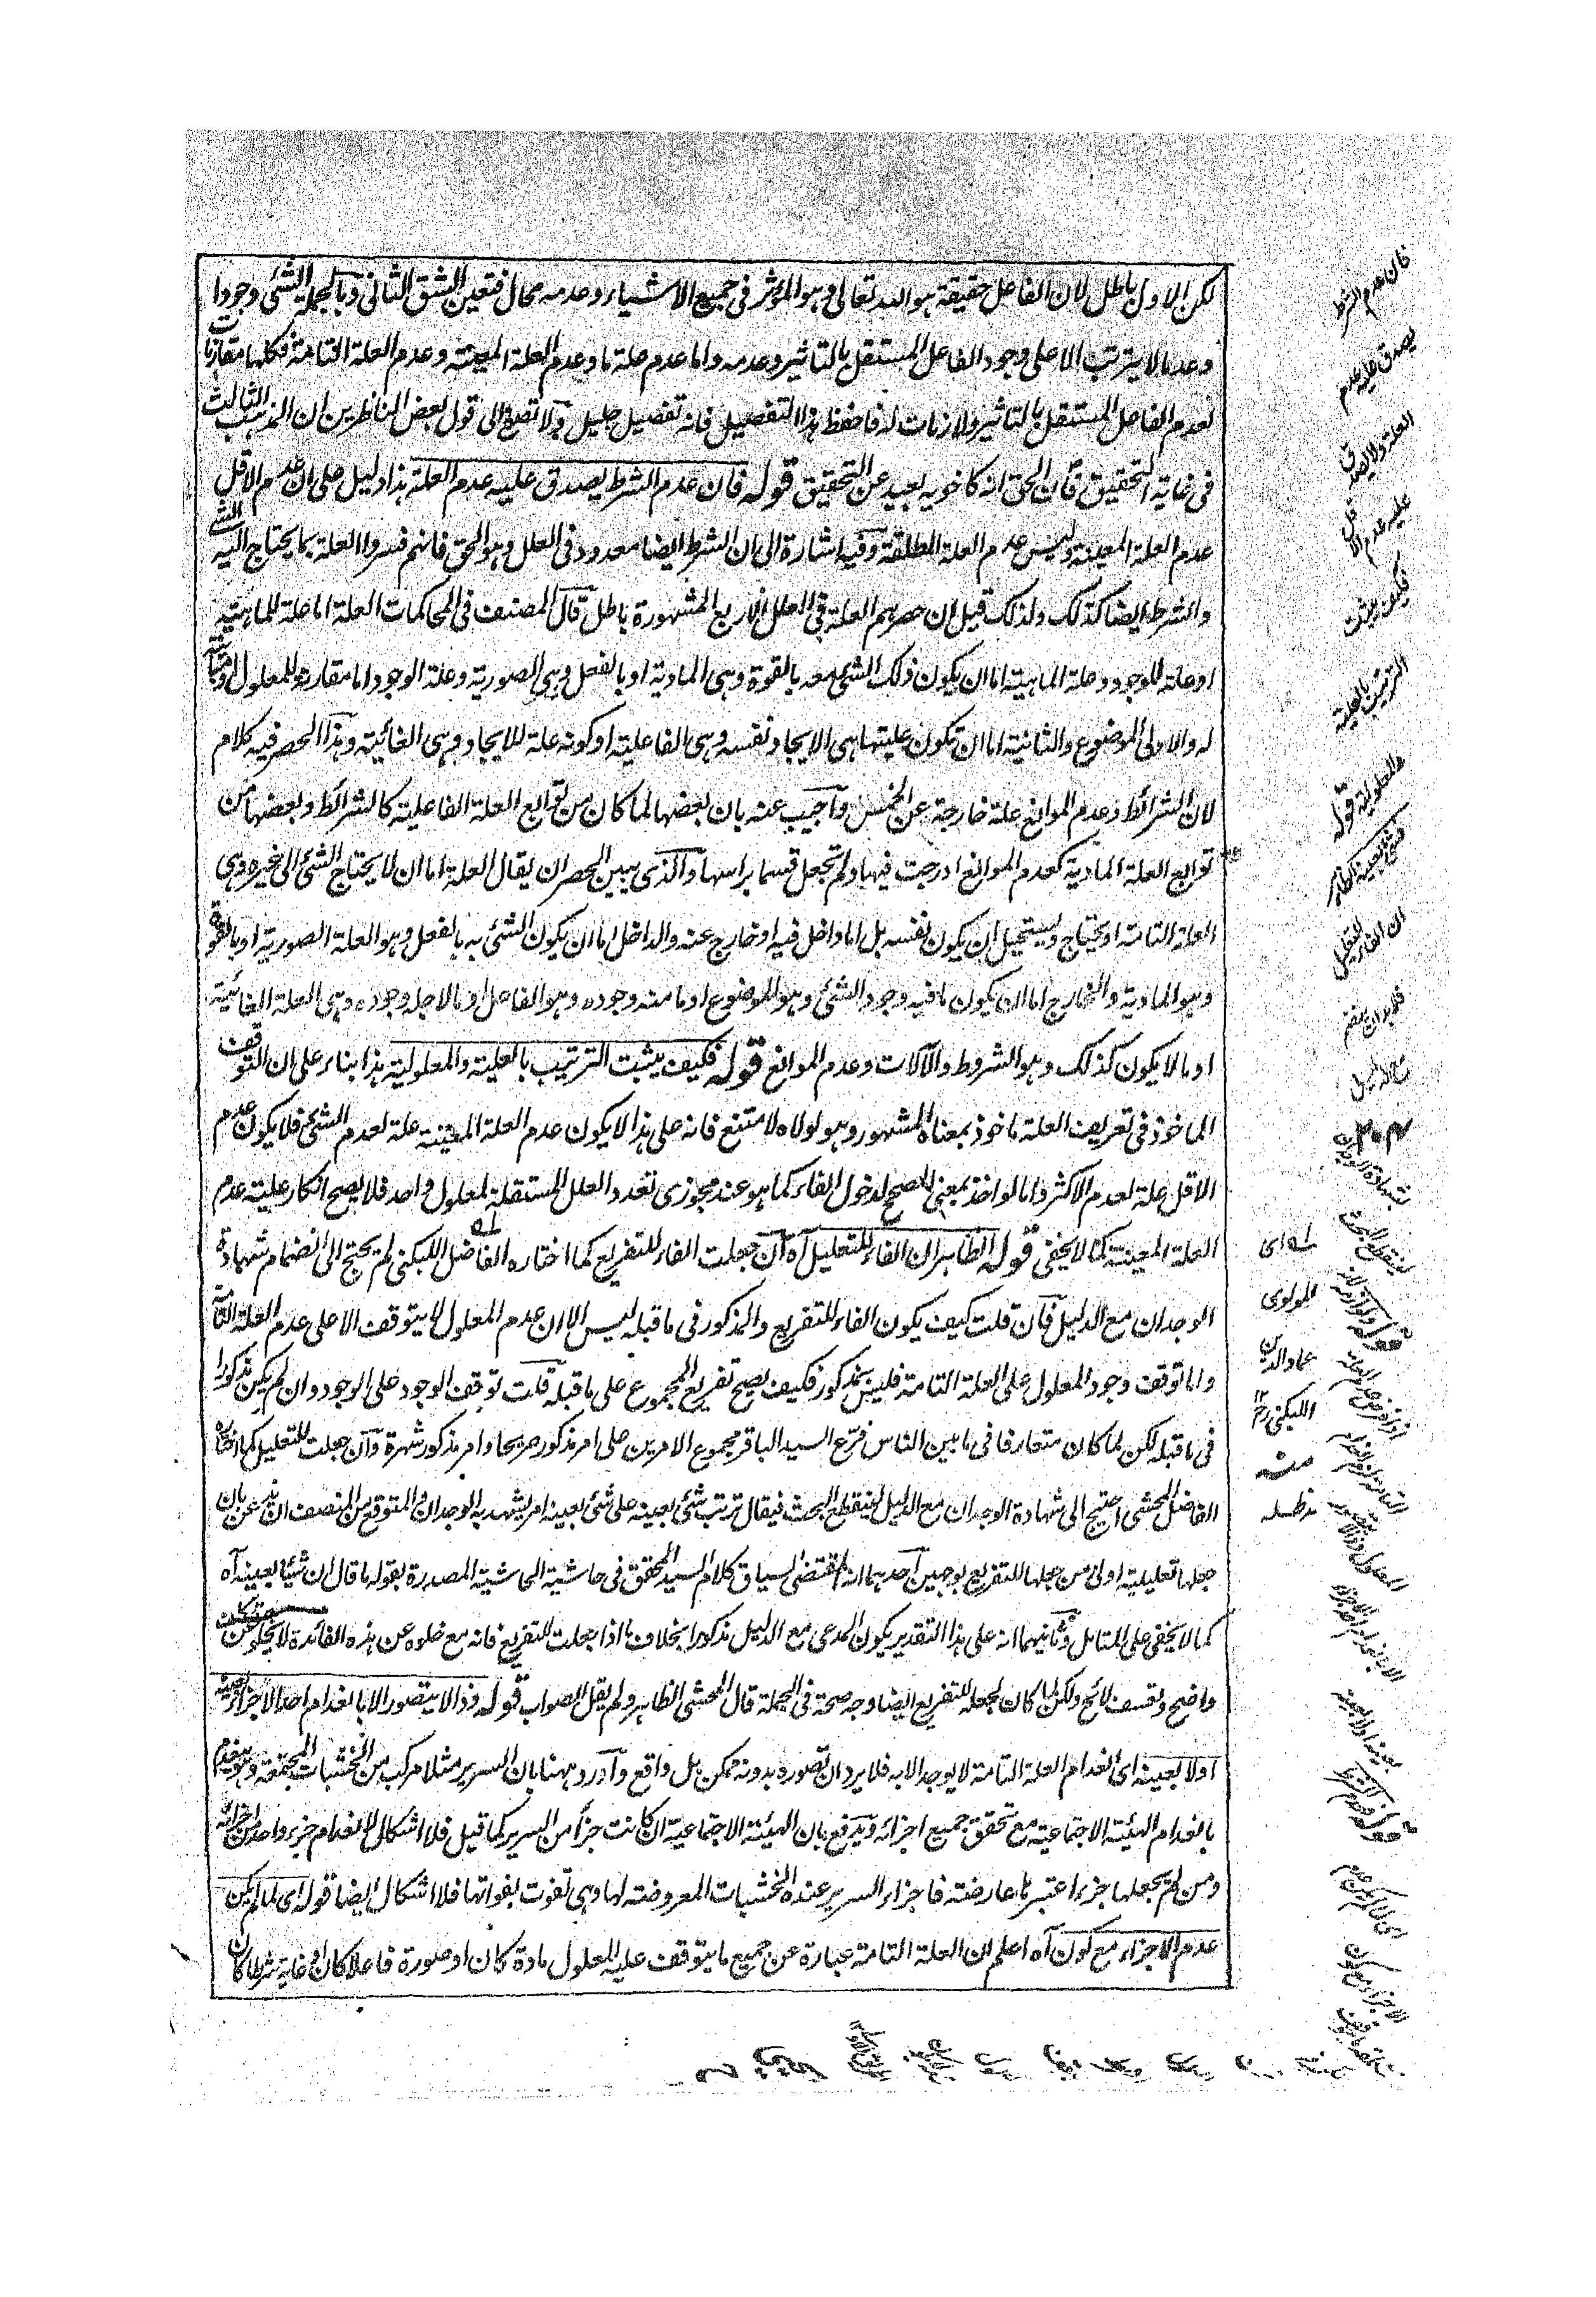 لكن الاول باطل لان الفاعل حقيقة هو الله تعالى وهو المؤثر في جميع الاشياء وعدمه محال فتعين الشق الثاني وبالجملة الشئ وجودا
وعدما لا يترتب الا على وجود الفاعل المستقل بالتاثير وعدمه واما عدم علة ما وعدم العلة المعينة وعدم العلة التامة فكلها مقارنات
لعدم الفاعل المستقل بالتاثير ولازمات له فاحفظ هذا التفصيل فانه تفصيل جليل ولا تصغ الى قول بعض الناظرين ان المذهب الثالث
في غاية التحقيق فان الحق انه كاخويه بعيد عن التحقيق قوله فان عدم الشرط يصدق عليه عدم العلة هذا دليل على ان عدم الاقل
عدم العلة المعينة وليس عدم العلة المطلقة وفيه اشارة الى ان الشرط ايضا معدود في العلل وهو الحق فانهم فسروا العلة بما يحتاج اليه الشئ
والشرط ايضا كذلك ولذلك قيل ان حصرهم العلة في العلل الاربع المشهورة باطل قال المصنف في المحاكمات العلة اما علة للماهية
او علة للوجود وعلة الماهية اما ان يكون ذلك الشئ معه بالقوة وهي المادية او بالفعل وهي الصورية وعلة الوجود اما مقارنة للمعلول او مبائنة
له والاولى الموضوع والثانية اما ان تكون عليتها هي الايجاد نفسه وهي الفاعلية او كونه علة للايجاد وهي الغائية وهذا الحصر فيه كلام
لان الشرائط وعدم الموانع علة خارجة عن الخمس واجيب عنه بان بعضها لما كان من توابع العلة الفاعلية كالشرائط وبعضها من
توابع العلة المادية كعدم الموانع ادرجت فيها ولم تجعل قسما براسها والذي يبين الحصر ان يقال العلة اما ان لا يحتاج الشئ الى غيره وهي
العلة التامة او يحتاج ويستحيل ان يكون نفسه بل اما داخل فيه او خارج عنه والداخل اما ان يكون الشئ به بالفعل وهو العلة الصورية او بالقوة
وهو المادية والخارج اما ان يكون ما فيه وجود الشئ وهو الموضوع او ما منه وجوده وهو الفاعل او ما لاجله وجوده وهي العلة الغائية
او ما لا يكون كذلك وهو الشروط والآلات وعدم الموانع قوله فكيف يثبت الترتيب بالعلية والمعلولية هذا بناء على ان التوقف
الماخوذ في تعريف العلة ماخوذ بمعناه المشهور وهو لولاه لامتنع فانه على هذا لا يكون عدم العلة المعينة علة لعدم الشئ فلا يكون عدم
الاقل علة لعدم الاكثر واما لو اخذ بمعنى المصحح لدخول الفاء كما هو عند مجوزي تعدد العلل المستقلة لمعلول واحد فلا يصح انكار علية عدم
العلة المعينة كما لا يخفى قوله الظاهر ان الفاء للتعليل آه ان جعلت الفاء للتفريع كما اختاره الفاضل اللبكني لم يحتج الى انضمام شهادة
الوجدان مع الدليل فان قلت كيف يكون الفاء للتفريع والمذكور في ما قبله ليس الا ان عدم المعلول لا يتوقف الا على عدم العلة التامة
واما توقف وجود المعلول على العلة التامة فليس بمذكور فكيف يصح تفريع المجموع على ما قبله قلت توقف الوجود على الوجود وان لم يكن مذكورا
في ما قبله لكن لما كان متعارفا في ما بين الناس فرع السيد الباقر مجموع الامرين على امر مذكور صريحا وامر مذكور شهرة وان جعلت للتعليل كما اختاره
الفاضل المحشي احتيج الى شهادة الوجدان مع الدليل لينقطع البحث فيقال ترتب شئ بعينه على شئ بعينه امر يشهد به الوجدان والمتوقع من المنصف ان يذعن بان
جعلها تعليلية اولى من جعلها للتفريع بوجهين احدهما انه المقتضى لسياق كلام السيد المحقق في حاشية الحاشية المصدرة بقوله ما قال ان شيئا بعينه آه
كما لا يخفى على المتامل وثانيهما انه على هذا التقدير يكون المدعى مع الدليل مذكورا بخلاف ما اذا جعلت للتفريع فانه مع خلوه عن هذه الفائدة لا يخلو عن تكلف
واضح وتعسف لائح ولكن لما كان لجعله للتفريع ايضا وجه صحة في الجملة قال المحشي الظاهر ولم يقل الصواب قوله وذا لا يتصور الا بانعدام احد الاجزاء بعينه
اولا بعينه اي انعدام العلة التامة لا يوجد الا به فلا يرد ان تصوره بدونه ممكن بل واقع واورد ههنا بان السرير مثلا مركب من الخشبات المجتمعة وهو ينعدم
بانعدام الهيئة الاجتماعية مع تحقق جميع اجزائه ويدفع بان الهيئة الاجتماعية ان كانت جزأ من السرير كما قيل فلا اشكال لانعدام جزء واحد من اجزائه
ومن لم يجعلها جزء اعتبرها عارضة فاجزاء السرير عنده الخشبات المعروضة لها وهي تفوت بفواتها فلا اشكال ايضا قوله اي لما لم يكن
عدم الاجزاء مع كون آه اعلم ان العلة التامة عبارة عن جميع ما يتوقف عليه المعلول مادة كان او صورة فاعلا كان او غاية شرطا كان
فان عدم الشرط
يصدق عليه عدم
العلة ولا يصدق
عليه عدم الاقل
فكيف يثبت
الترتيب بالعلية
والمعلولية قوله
ان الفاء للتعليل
مع الدليل
بشهادة الوجدان
لينقطع البحث
له اي
المولوي
عماد الدين
اللبكني رح ١٢
منه
مدظله